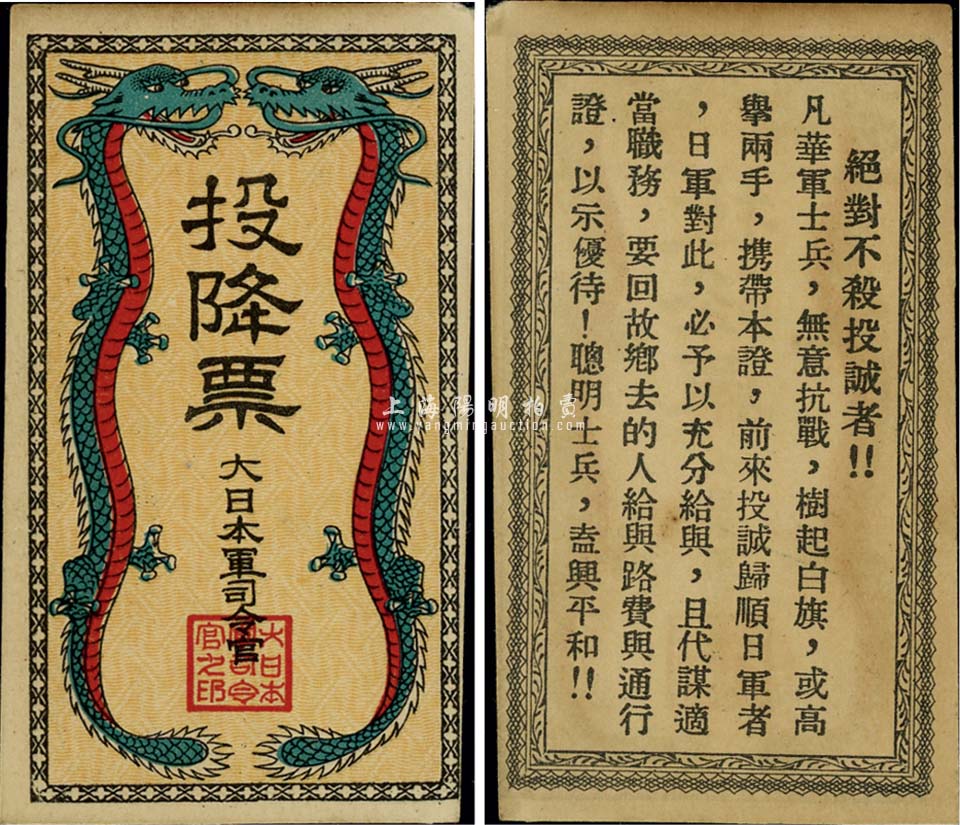 投降票
大日本軍司令官
大日本
軍司令
官之印
上海陽明拍賣
www.yangmingauction.com
絕對不殺投誠者!!
凡華軍士兵,無意抗戰,樹起白旗,或高
舉兩手,携帶本證,前來投誠歸順日軍者
,日軍對此,必予以充分給與,且代謀適
當職務,要回故鄉去的人給與路費與通行
證,以示優待!聰明士兵,盍興平和!!